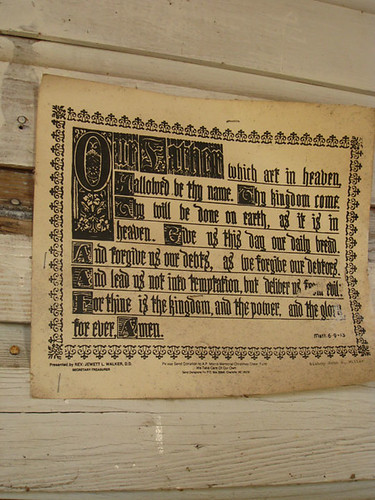 Our Father which art in heaven,
Hallowed be thy name. Thy kingdom come
Thy will be done on earth, as it is in
heaven. Give us this day our daily bread
And forgive us our debts, as we forgive our debtors.
And lead us not into temptation, but deliver us from evil:
For thine is the kingdom, and the power, and the glory
for ever. Amen.
Matt 6·9-13
Presented by REV. JEWETT L. WALKER, D.D.
SECRETARY-TREASURER
We Take Care Of Our Own